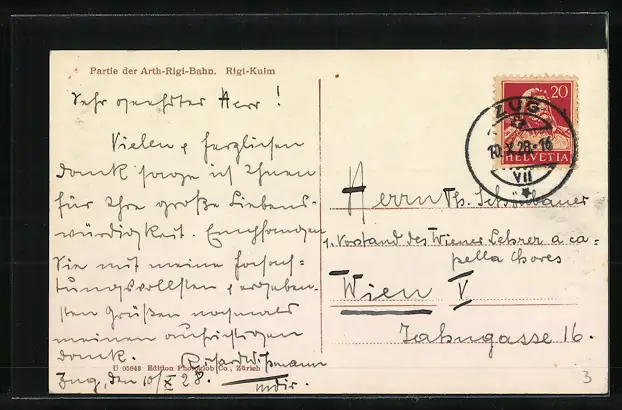 Partie der Arth-Rigi-Bahn. Rigi-Kulm
Sehr geehrter Herr!
Vielen & herzlichen
Dank sage ich Ihnen
für Ihre große Liebens-
würdigkeit. Empfangen
Sie mit meine hochach-
tungsvollsten & ergeben-
sten Grüßen nochmals
meinen aufrichtigen
Dank.
Zug, den 10/X 28.
Mdir.
Ü 05843 Edition Photoglob Co., Zürich
20
HELVETIA
ZUG
10.X.28-16
VII
Herrn Th.
1. Vorstand des Wiener Lehrer a ca=
pella Chores
Wien V
Jahngasse 16.
3